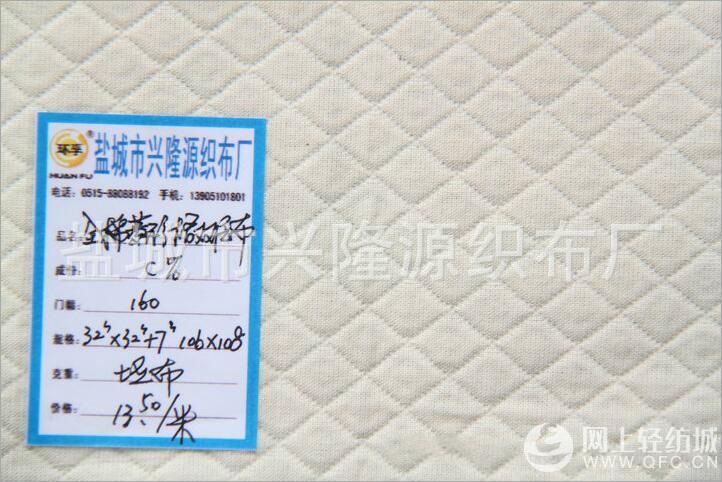 环孚®
HUAN FU
盐城市兴隆源织布厂
电话: 0515-88088192 手机: 13905101801
品名: 全棉菱形格双层布
成份: C%
门幅: 160
规格: 32ˢ×32ˢ+7ˢ 106×108
克重: 坯布
价格: 13.50/米
盐城市兴隆源织布厂
网上轻纺城
WWW.QFC.CN